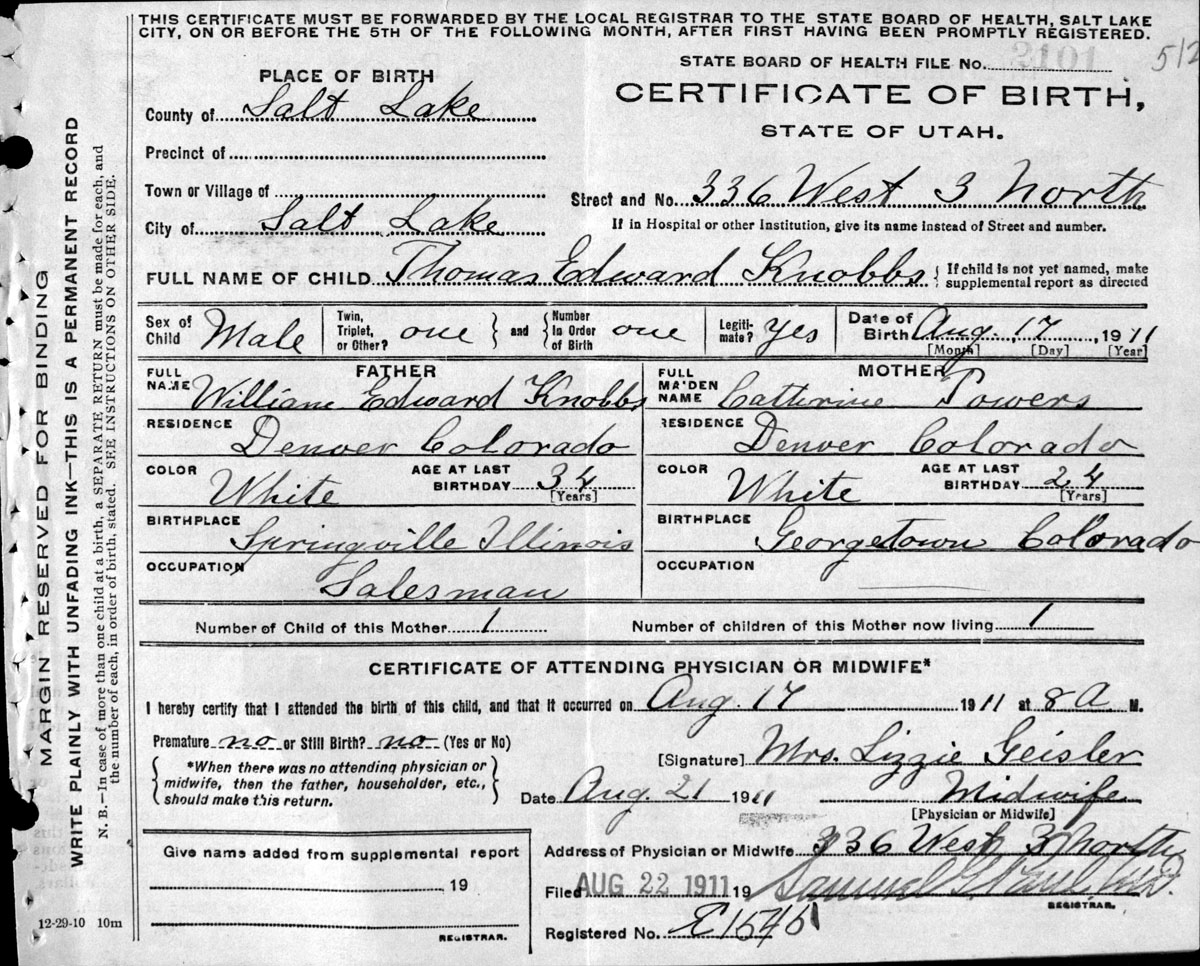 THIS CERTIFICATE MUST BE FORWARDED BY THE LOCAL REGISTRAR TO THE STATE BOARD OF HEALTH, SALT LAKE
CITY, ON OR BEFORE THE 5TH OF THE FOLLOWING MONTH, AFTER FIRST HAVING BEEN PROMPTLY REGISTERED.
STATE BOARD OF HEALTH FILE No. 2101
512
PLACE OF BIRTH
CERTIFICATE OF BIRTH,
STATE OF UTAH.
County of Salt Lake
Precinct of
Town or Village of
Street and No. 336 West 3 North
City of Salt Lake
If in Hospital or other Institution, give its name instead of Street and number.
FULL NAME OF CHILD Thomas Edward Knobbs { If child is not yet named, make
supplemental report as directed
Sex of Child Male
Twin, Triplet, or Other? one } and { Number In Order of Birth one
Legiti- mate? yes
Date of Birth Aug. 17, 1911
[Month] [Day] [Year]
FATHER
MOTHER
FULL NAME William Edward Knobbs
FULL MAIDEN NAME Catherine Powers
RESIDENCE Denver Colorado
RESIDENCE Denver Colorado
COLOR White AGE AT LAST BIRTHDAY 34 [Years]
COLOR White AGE AT LAST BIRTHDAY 24 [Years]
BIRTHPLACE Springville Illinois
BIRTHPLACE Georgetown Colorado
OCCUPATION Salesman
OCCUPATION
Number of Child of this Mother 1
Number of children of this Mother now living 1
CERTIFICATE OF ATTENDING PHYSICIAN OR MIDWIFE*
I hereby certify that I attended the birth of this child, and that it occurred on Aug. 17 1911 at 8 A M.
Premature no or Still Birth? no (Yes or No)
[Signature] Mrs. Lizzie Geisler
{ *When there was no attending physician or
midwife, then the father, householder, etc.,
should make this return. }
Date Aug. 21 1911 Midwife
[Physician or Midwife]
Give name added from supplemental report
19
REGISTRAR.
Address of Physician or Midwife 336 West 3 North
Filed AUG 22 1911 19 Samuel G.
REGISTRAR.
Registered No.
12-29-10 10m
MARGIN RESERVED FOR BINDING
WRITE PLAINLY WITH UNFADING INK—THIS IS A PERMANENT RECORD
N. B.—In case of more than one child at a birth, a SEPARATE RETURN must be made for each, and
the number of each, in order of birth, stated. SEE INSTRUCTIONS ON OTHER SIDE.